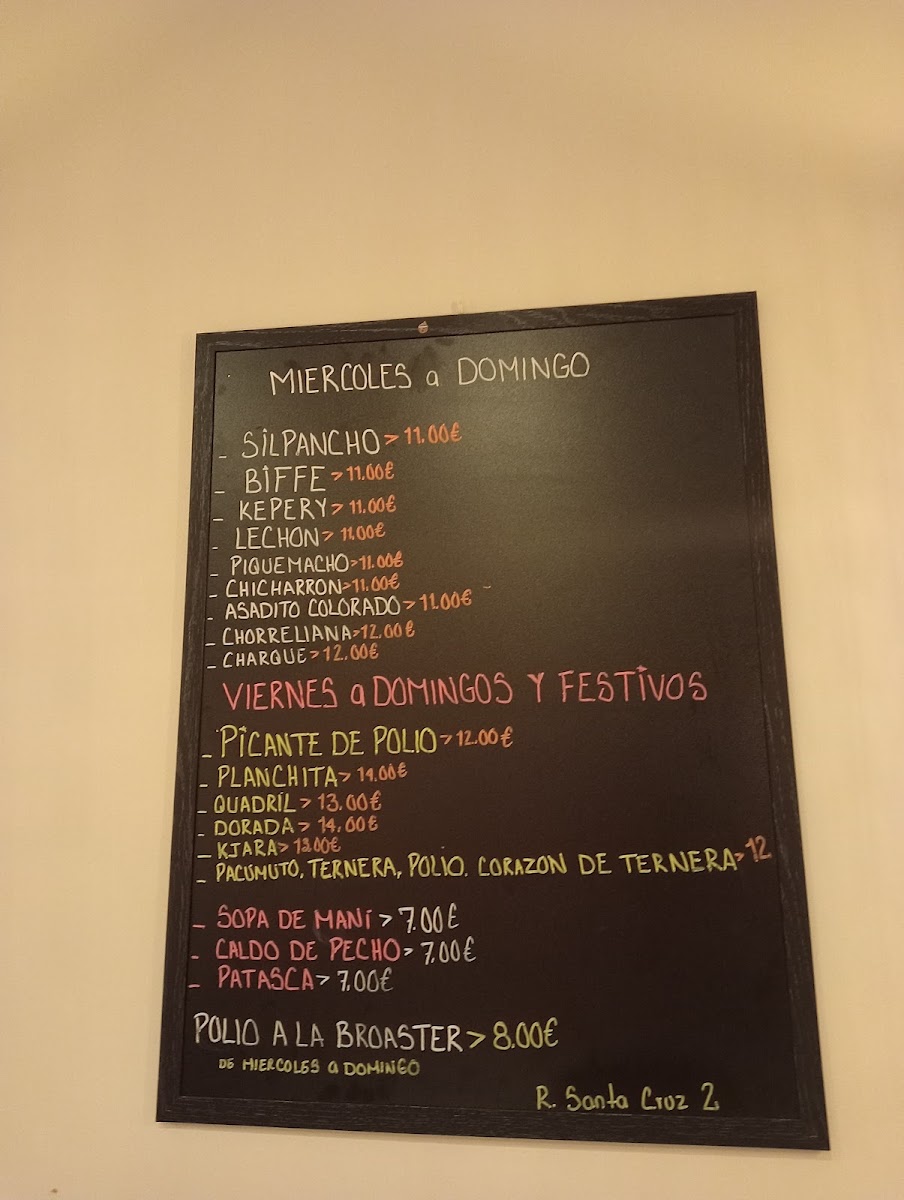 MIERCOLES a DOMINGO
- SILPANCHO > 11.00€
- BIFFE > 11.00€
- KEPERY > 11.00€
- LECHON > 11.00€
- PIQUEMACHO > 11.00€
- CHICHARRON > 11.00€
- ASADITO COLORADO > 11.00€
- CHORRELIANA > 12.00€
- CHARQUE > 12.00€
VIERNES a DOMINGOS Y FESTIVOS
- PICANTE DE POLIO > 12.00€
- PLANCHITA > 14.00€
- QUADRIL > 13.00€
- DORADA > 14.00€
- KJARA > 13.00€
- PACUMUTO, TERNERA, POLIO. CORAZON DE TERNERA > 12
- SOPA DE MANI > 7.00€
- CALDO DE PECHO > 7.00€
- PATASCA > 7.00€
POLIO A LA BROASTER > 8.00€
DE MIERCOLES a DOMINGO
R. Santa Cruz 2